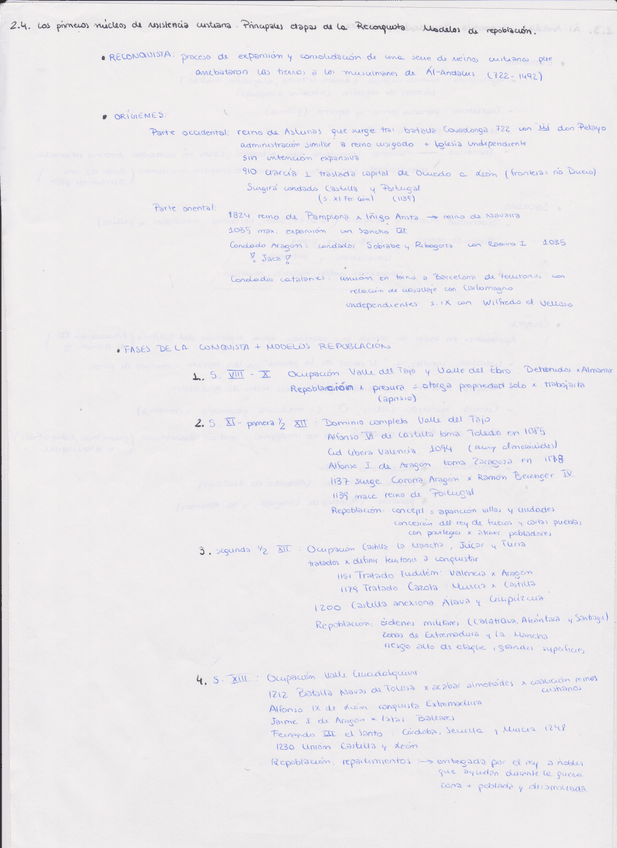 2.4. Los primeros núcleos de resistencia cristiana. Principales etapas de la Reconquista. Modelos de repoblación.
• RECONQUISTA: proceso de expansión y consolidación de una serie de reinos cristianos que
arrebataron las tierras a los musulmanes de Al-Andalus (722-1492)
• ORÍGENES:
Parte occidental: reino de Asturias que surge tras batalla Covadonga 722 con don Pelayo
administración similar a reino visigodo + Iglesia independiente
sin intención expansiva
910 García I traslada capital de Oviedo a León (frontera: río Duero)
Surgirá condado Castilla y Portugal
(1139)
Parte oriental:
1824 reino de Pamplona x Iñigo Arista → reino de Navarra
1035 max. expansión con Sancho III
Condado Aragón: condados Sobrarbe y Ribagorza con Ramiro I 1035
¡Jaca!
Condados catalanes: unión en torno a Barcelona de territorios con
relación de vasallaje con Carlomagno
independientes s. IX con Wilfredo el Velloso
• FASES DE LA CONQUISTA + MODELOS REPOBLACIÓN
1. S. VIII - X Ocupación Valle del Tajo y Valle del Ebro. Detenidos x Almanzor
Repoblación x presura = otorga propiedad solo x trabajarla
(aprisio)
2. S. XI - primera 1/2 XII: Dominio completo Valle del Tajo
Alfonso VI de Castilla toma Toledo en 1085
Cid libera Valencia 1094
Alfonso I de Aragón toma Zaragoza en 1118
1137 surge Corona Aragón x Ramón Berenguer IV
1139 nace reino de Portugal
Repoblación: concejil = aparición villas y ciudades
concesión del rey de fueros y cartas pueblas
con privilegios x atraer pobladores
3. segunda 1/2 XII: Ocupación Castilla La Mancha, Júcar y Turia
tratados x definir territorios a conquistar
1151 Tratado Tudillén: Valencia x Aragón
1179 Tratado Cazola: Murcia x Castilla
1200 Castilla anexiona Alava y Guipúzcoa
Repoblación: órdenes militares (Calatrava, Alcántara y Santiago)
zonas de Extremadura y La Mancha
riesgo alto de ataque, grandes superficies
4. S. XIII: Ocupación Valle Guadalquivir
1212 Batalla Navas de Tolosa x acabar almohades x coalición reinos
cristianos
Alfonso IX de León conquista Extremadura
Jaime I de Aragón = Islas Baleares
Fernando III el Santo: Córdoba, Sevilla y Murcia 1248
1230 Unión Castilla y León
Repoblación: repartimientos → entregada por el rey a nobles
que ayudan durante la guerra
zona + poblada y desarrollada